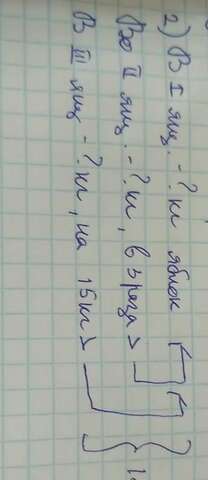 2) В I ящ. - ? кг яблок
Во II ящ. - ? кг, в 3 раза >
В III ящ - ? кг, на 15 кг >